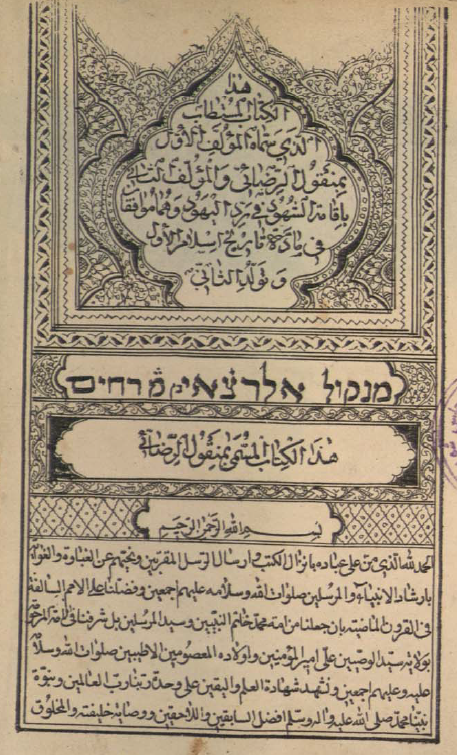 هذا
الكتاب المستطاب
الذي سماه المؤلف الاول
بمنقول الرضائي والمؤلف الثاني
باقامة الشهود في رد اليهود وهما موافقا
في مادة تاريخ اسلام الاول
وتولد الثاني
מנקול אלרצׄאי
هذا الكتاب المسمى بمنقول الرضائي
بسم الله الرحمن الرحيم
الحمد لله الذي من على عباده بانزال الكتب وارسال الرسل المقربين ونجيهم عن الغباوة والغوايه
بارشاد الانبياء والمرسلين صلوات الله وسلامه عليهم اجمعين وفضلنا على الامم السالفة
في القرون الماضية بان جعلنا من امة محمد خاتم النبيين وسيد المرسلين بل شرفنا
بولاية سيد الوصيين علي امير المؤمنين واولاده المعصومين الاطيبين صلوات الله وسلامه
عليه وعليهم اجمعين ونشهد شهادة العلم واليقين على وحدة ربنا رب العالمين ونبوة
نبينا محمد صلى الله عليه واله وسلم افضل السابقين واللاحقين ووصاية خليفته والمخلوق